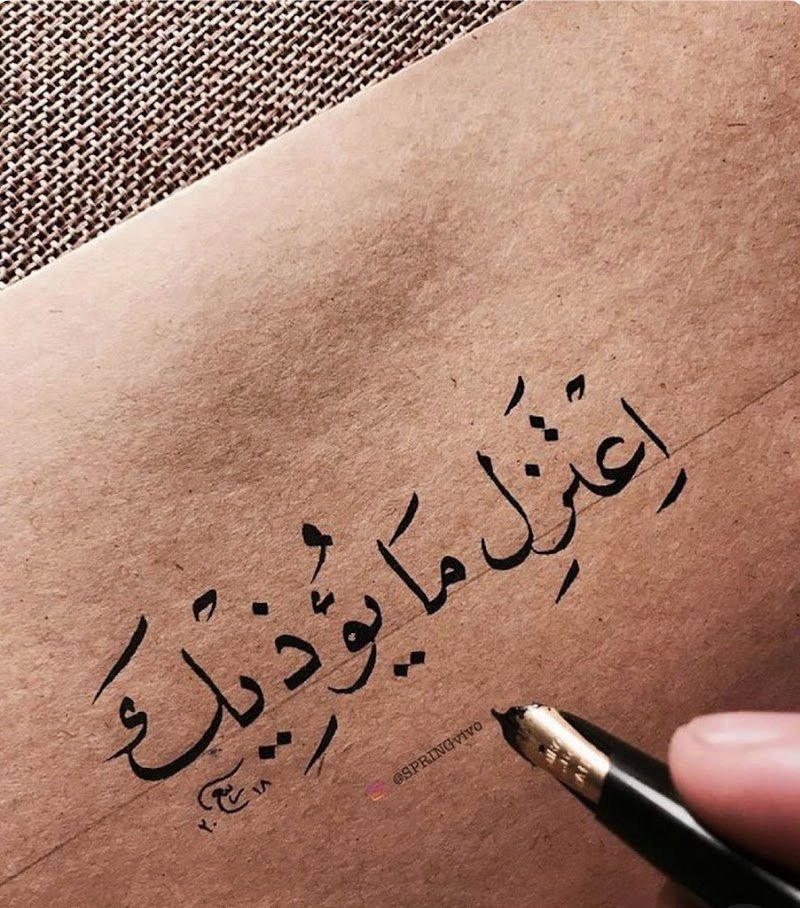 اِعْتَزِل ما يُؤذِيْكَ
ربيع
٢٠١٨
@SPRINGvivo